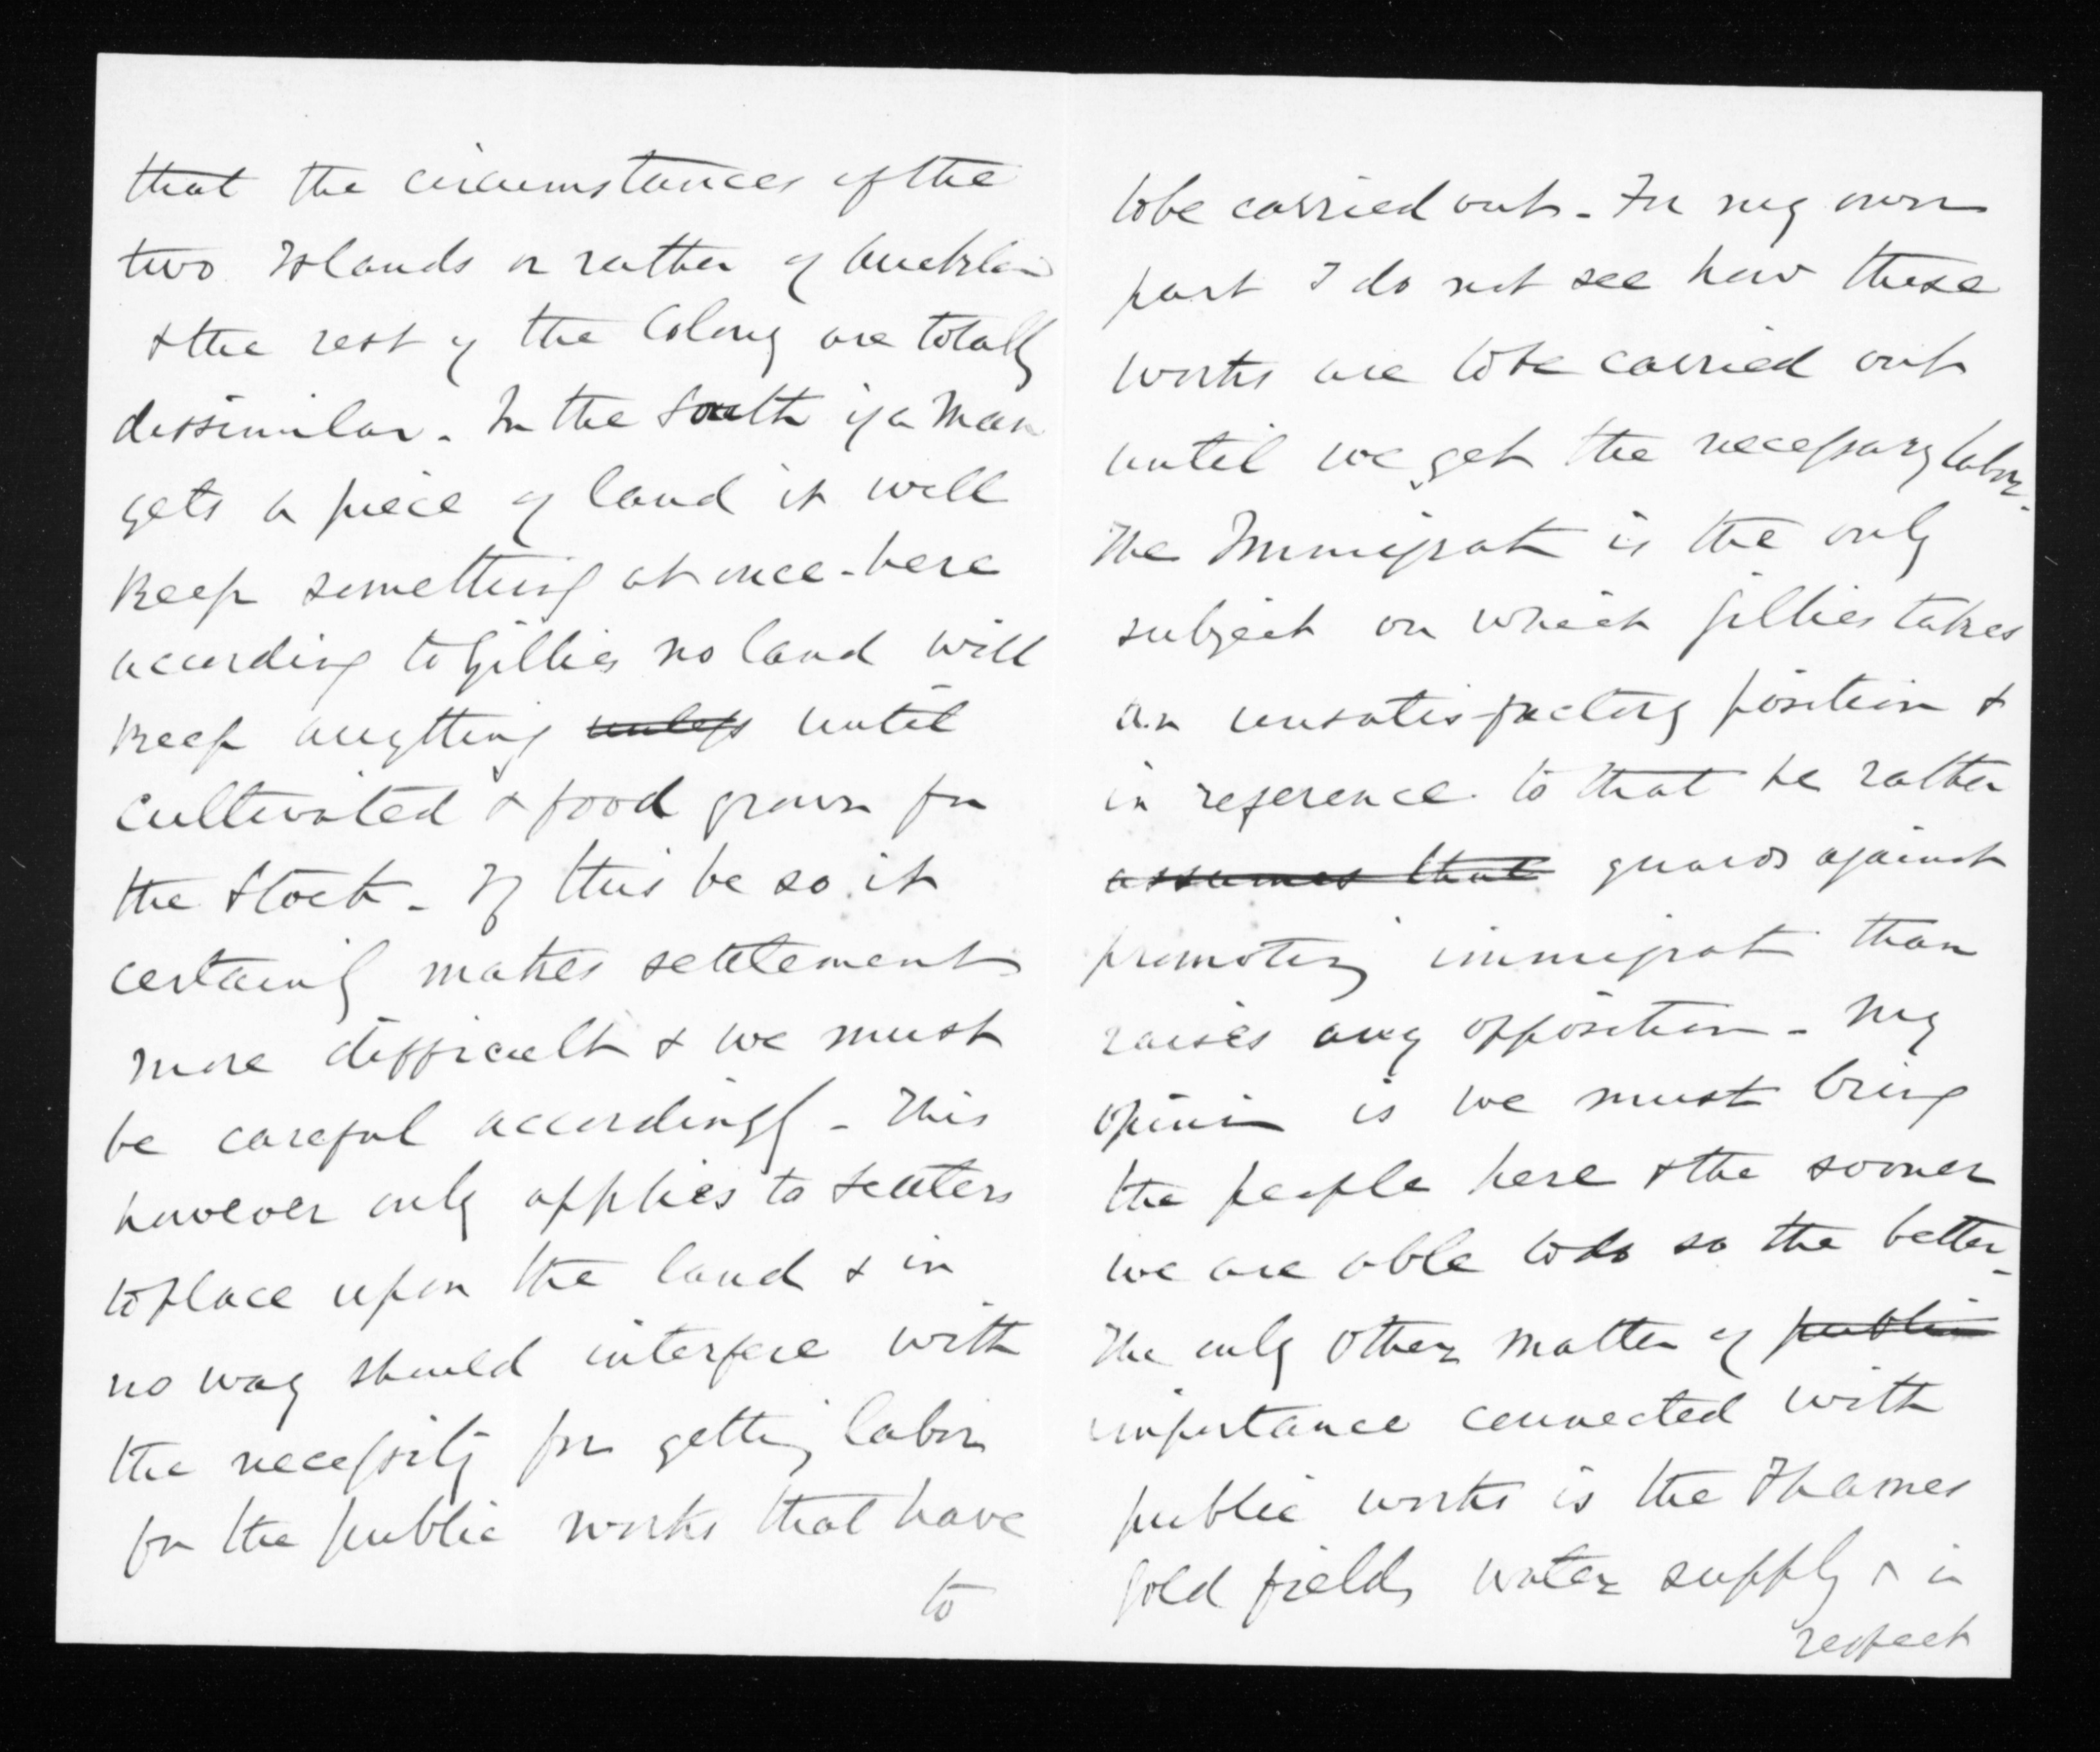 that the circumstances of the
two Islands or rather of Aucklan
& the rest of the Colony are totally
dissimilar. In the South if a Man
gets a piece of land it will
keep something at once - here
according to Gillies no land will
keep anything unless until
cultivated & food grown for
the Stock - If this be so it
certainly makes settlement
more difficult & we must
be careful accordingly - This
however only applies to settlers
to place upon the land & in
no way should interfere with
the necessity for getting labor
for the public works that have
to
to be carried out - For my own
part I do not see how these
works are to be carried out
until we get the necessary labor.
The Immigratn is the only
subject on which Gillies takes
an unsatisfactory position &
in reference to that he rather
assumes that guards against
promoting immigratn than
raises any opposition - My
opinion is we must bring
the people here & the sooner
we are able to do so the better -
The only other matter of public
importance connected with
public works is the Thames
Gold fields water supply & in
respect